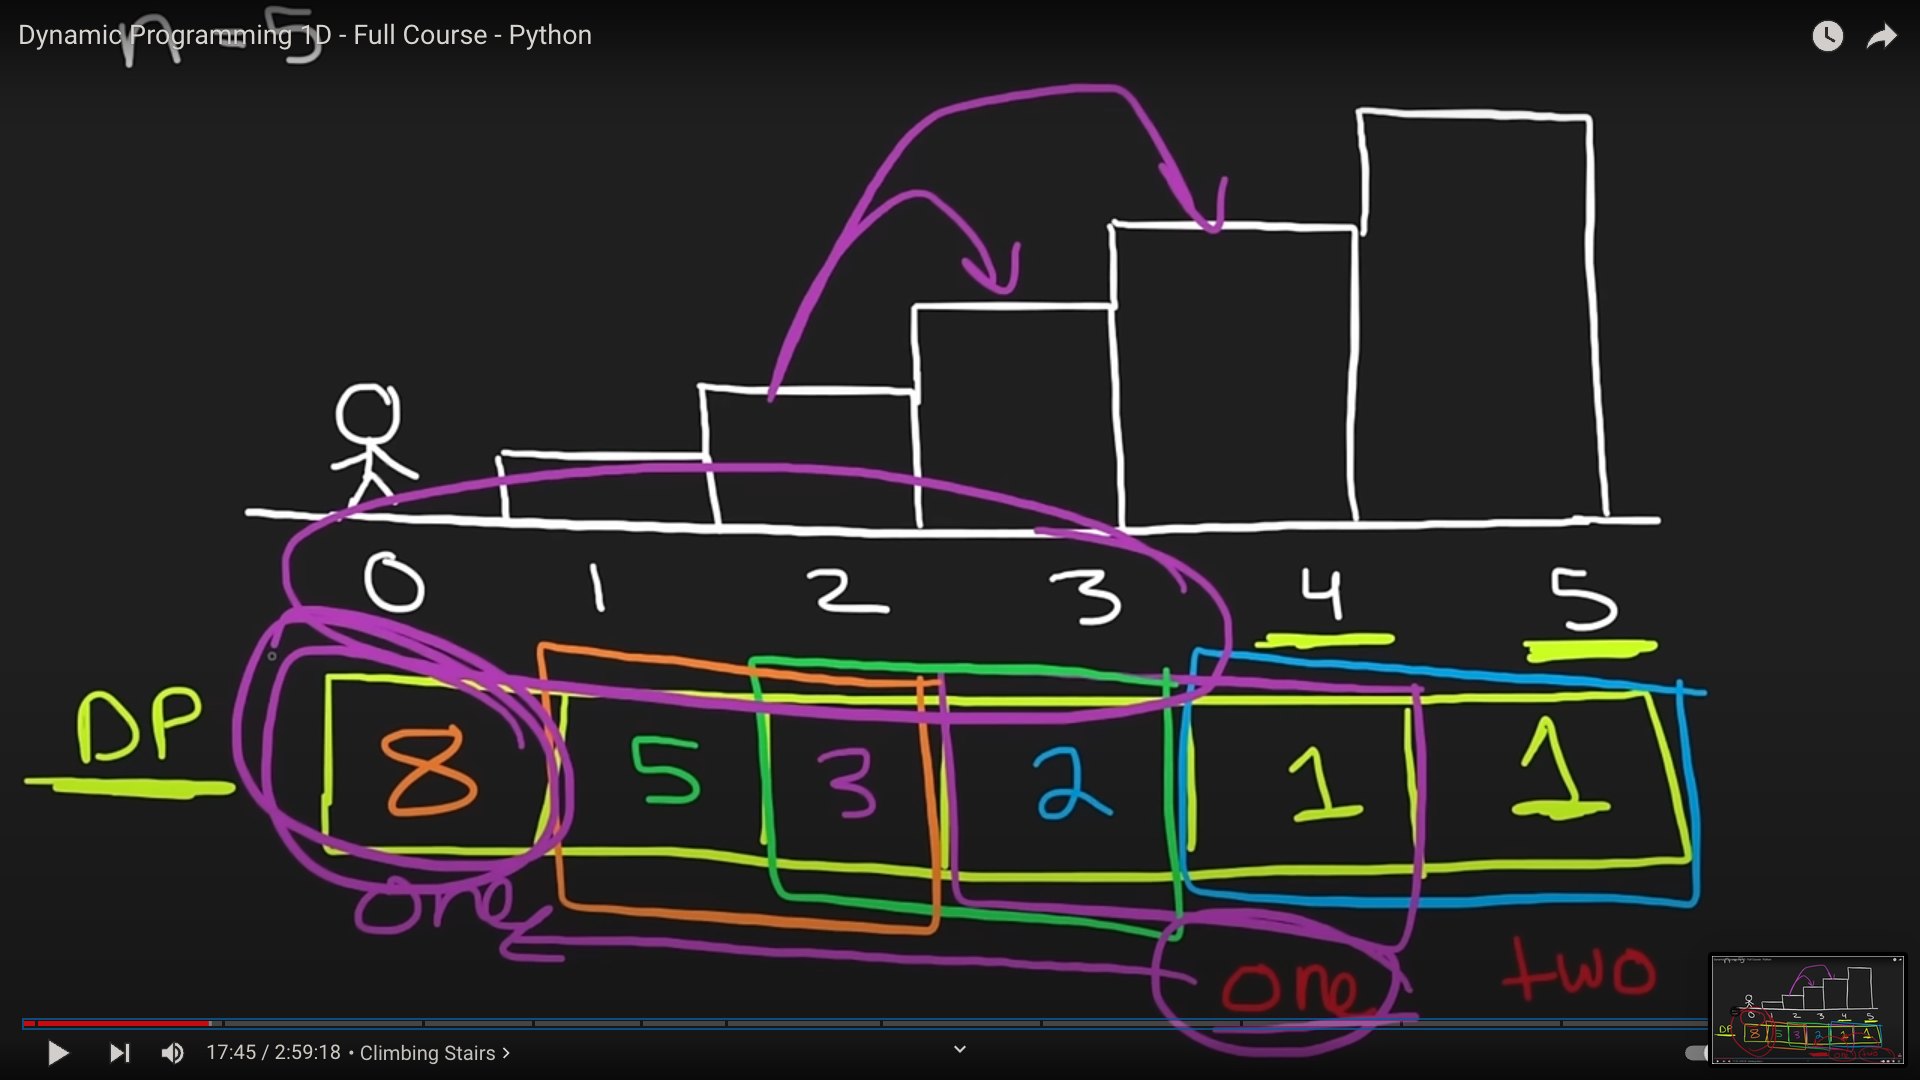 Dynamic Programming 1D - Full Course - Python
n = 5
0 1 2 3 4 5
DP 8 5 3 2 1 1
one one two
17:45 / 2:59:18 • Climbing Stairs >